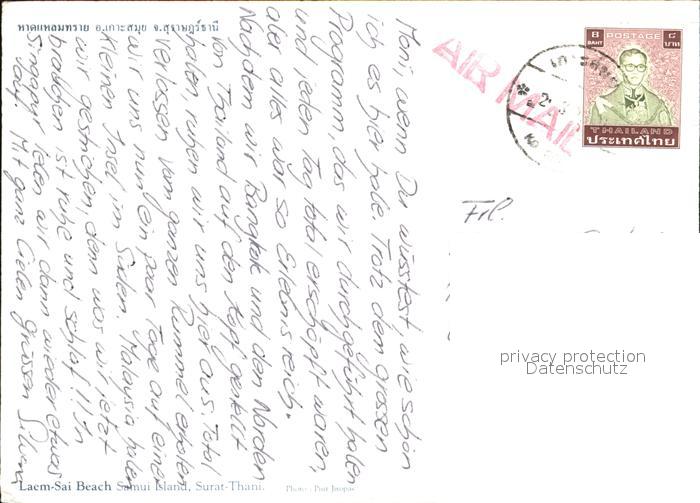 หาดแหลมทราย อ.เกาะสมุย จ.สุราษฎร์ธานี
Moni, wenn Du wüsstest, wie schön
ich es hier habe. Trotz dem grossen
Programm, das wir durchgeführt haben
und jeden Tag total erschöpft waren,
aber alles war so Erlebnisreich.
Nachdem wir Bangkok und den Norden
von Thailand auf den Kopf gestellt
haben ruhen wir uns hier aus. Total
verlassen vom ganzen Rummel erholen
wir uns nun ein paar Tage auf einer
kleinen Insel im Süden. Malaysia haben
wir gestrichen, denn was wir jetzt
brauchen ist ruhe und schlaf!! In
Singapur leben wir dann wieder etwas
Mit ganz lieben Grüssen Silvia
Laem-Sai Beach Samui Island, Surat-Thani.
Photo :
AIR MAIL
8 BAHT
POSTAGE
๘ บาท
THAILAND
ประเทศไทย
Frl.
privacy protection
Datenschutz